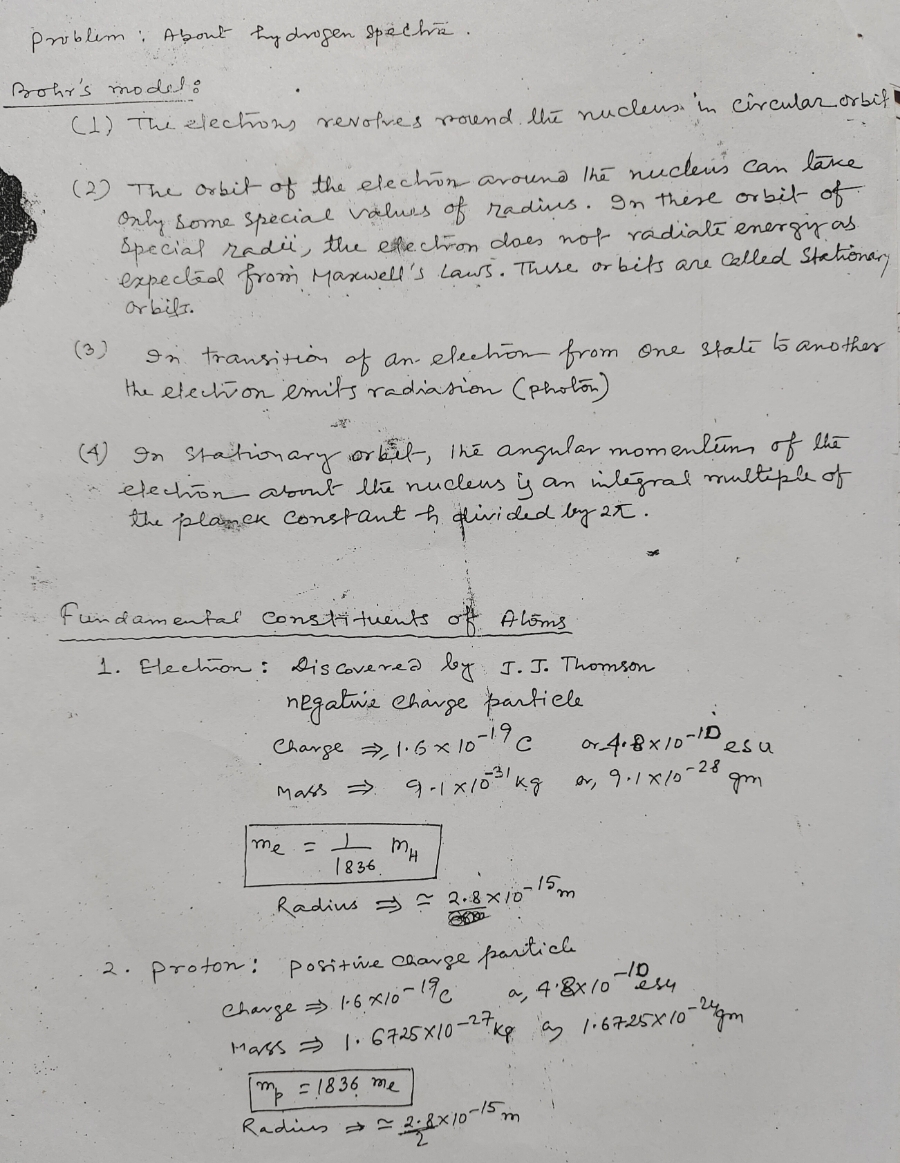 Problem : About hydrogen spectra.
Bohr's model :
(1) The electrons revolves round the nucleus in circular orbit
(2) The orbit of the electron around the nucleus can take
only some special values of radius. In these orbit of
special radii, the electron does not radiate energy as
expected from Maxwell's Laws. These orbits are called Stationary
orbits.
(3) In transition of an electron from one state to another
the electron emits radiation (photon)
(4) In stationary orbit, the angular momentum of the
electron about the nucleus is an integral multiple of
the planck constant h divided by 2π.
Fundamental constituents of Atoms
1. Electron : Discovered by J. J. Thomson
negative charge particle
Charge ⇒ 1.6 × 10⁻¹⁹ C or 4.8 × 10⁻¹⁰ esu
Mass ⇒ 9.1 × 10⁻³¹ kg or, 9.1 × 10⁻²⁸ gm
me = 1/1836 mH
Radius ⇒ ≃ 2.8 × 10⁻¹⁵ m
2. proton : positive charge particle
Charge ⇒ 1.6 × 10⁻¹⁹ C or, 4.8 × 10⁻¹⁰ esu
Mass ⇒ 1.6725 × 10⁻²⁷ kg or, 1.6725 × 10⁻²⁴ gm
mp = 1836 me
Radius ⇒ ≃ 2.8/2 × 10⁻¹⁵ m